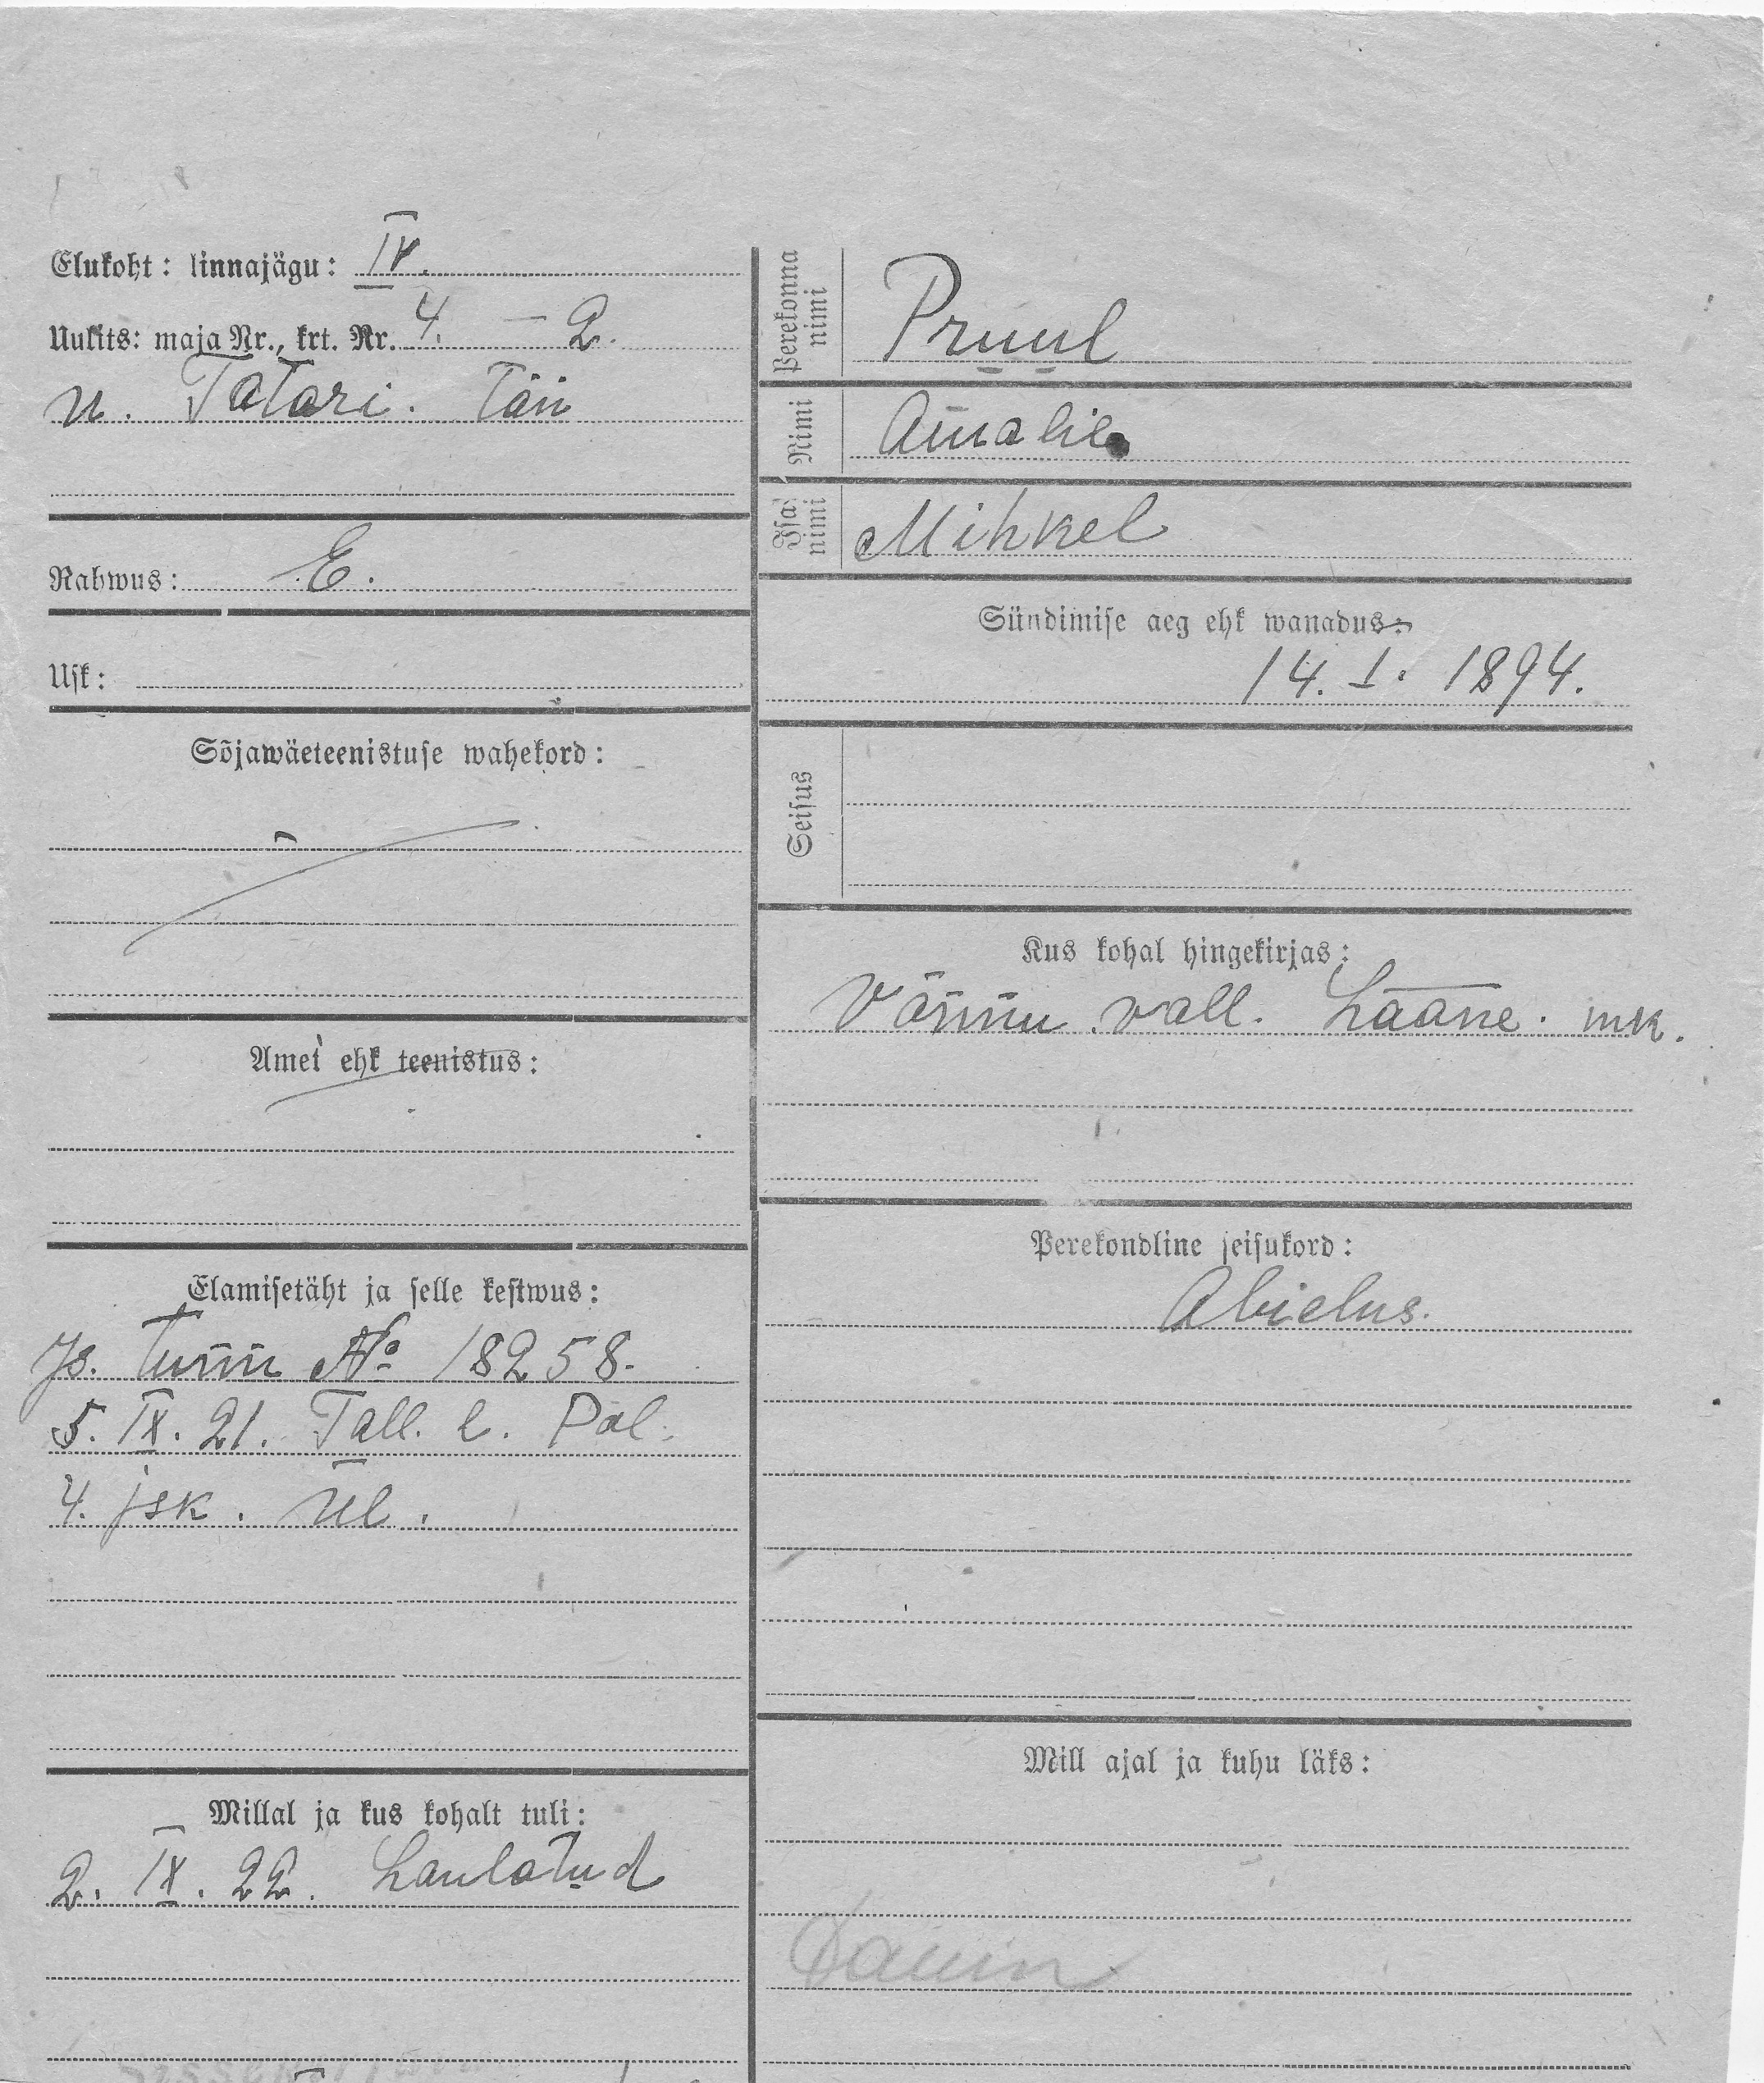 Elukoht: linnajägu: IV.
Uulits: maja Nr., krt. Nr. 4. — 2.
u. Tatari. tän
Rahwus: E.
Usk:
Sõjawäeteenistuse wahekord:
Amet ehk teenistus:
Elamisetäht ja selle kestwus:
Is. tunn № 18258.
5. IX. 21. Tall. l. Pol.
4. jsk. ül.
Millal ja kus kohalt tuli:
2. IX. 22. Laulatud
Perekonna nimi
Pruul
Nimi
Amalie
Isa nimi
Mihkel
Sündimise aeg ehk wanadus:
14. I. 1894.
Seisus
Kus kohal hingekirjas:
Võnnu vall. Lääne. mk.
Perekondline seisukord:
Abielus.
Mill ajal ja kuhu läks: